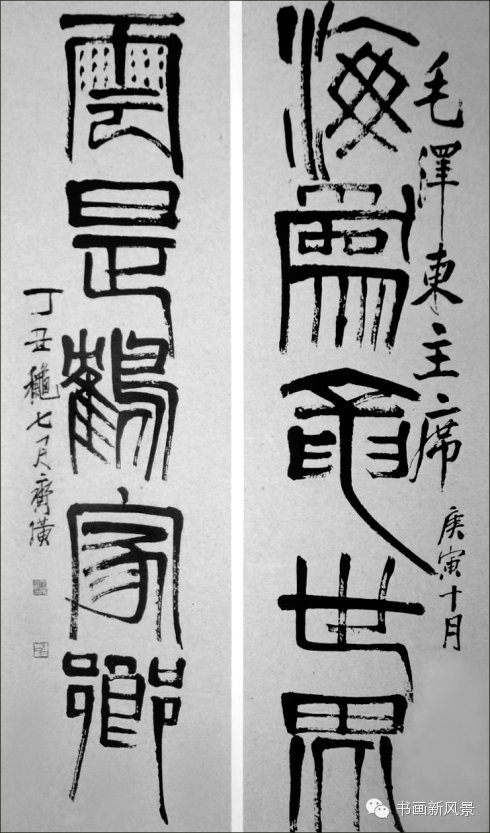 毛澤東主席
庚寅十月
海為龍世界
雲是鶴家鄉
丁丑龝七月齊璜
书画新风景